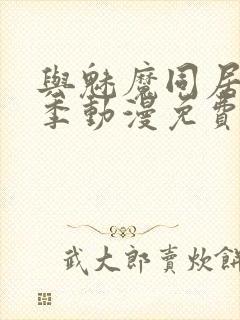 與魅魔同居
季動漫免費
武大郎賣炊餅